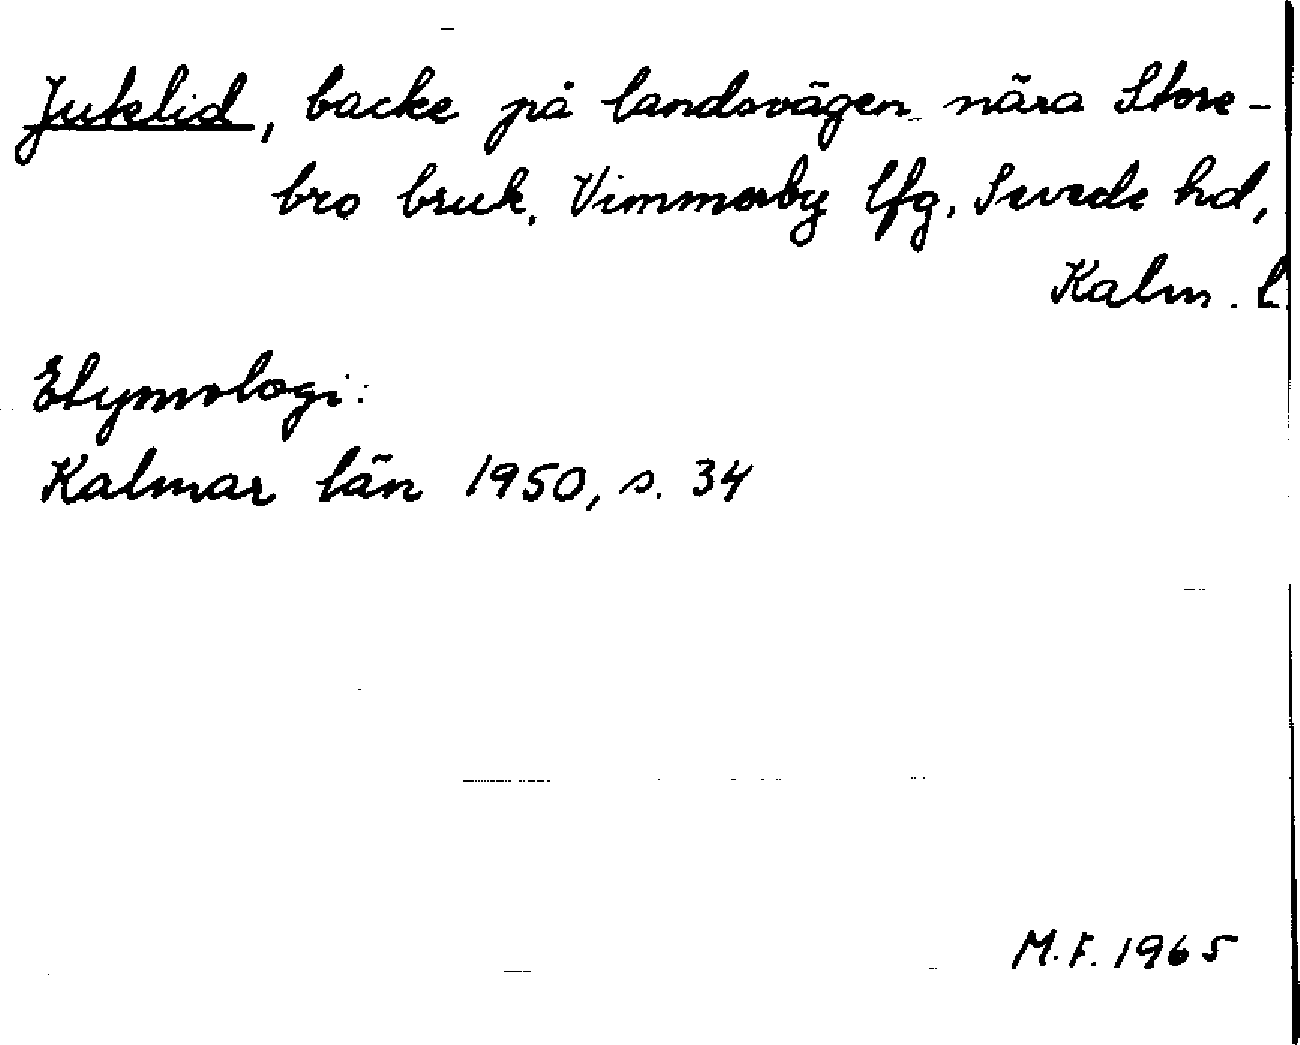 Juteslid, backe på landsvägen nära Store-
bro bruk, Vimmerby lfg, Sevede hd,
Kalm. l.
Etymologi:
Kalmar län 1950, s. 34
M.F. 1965